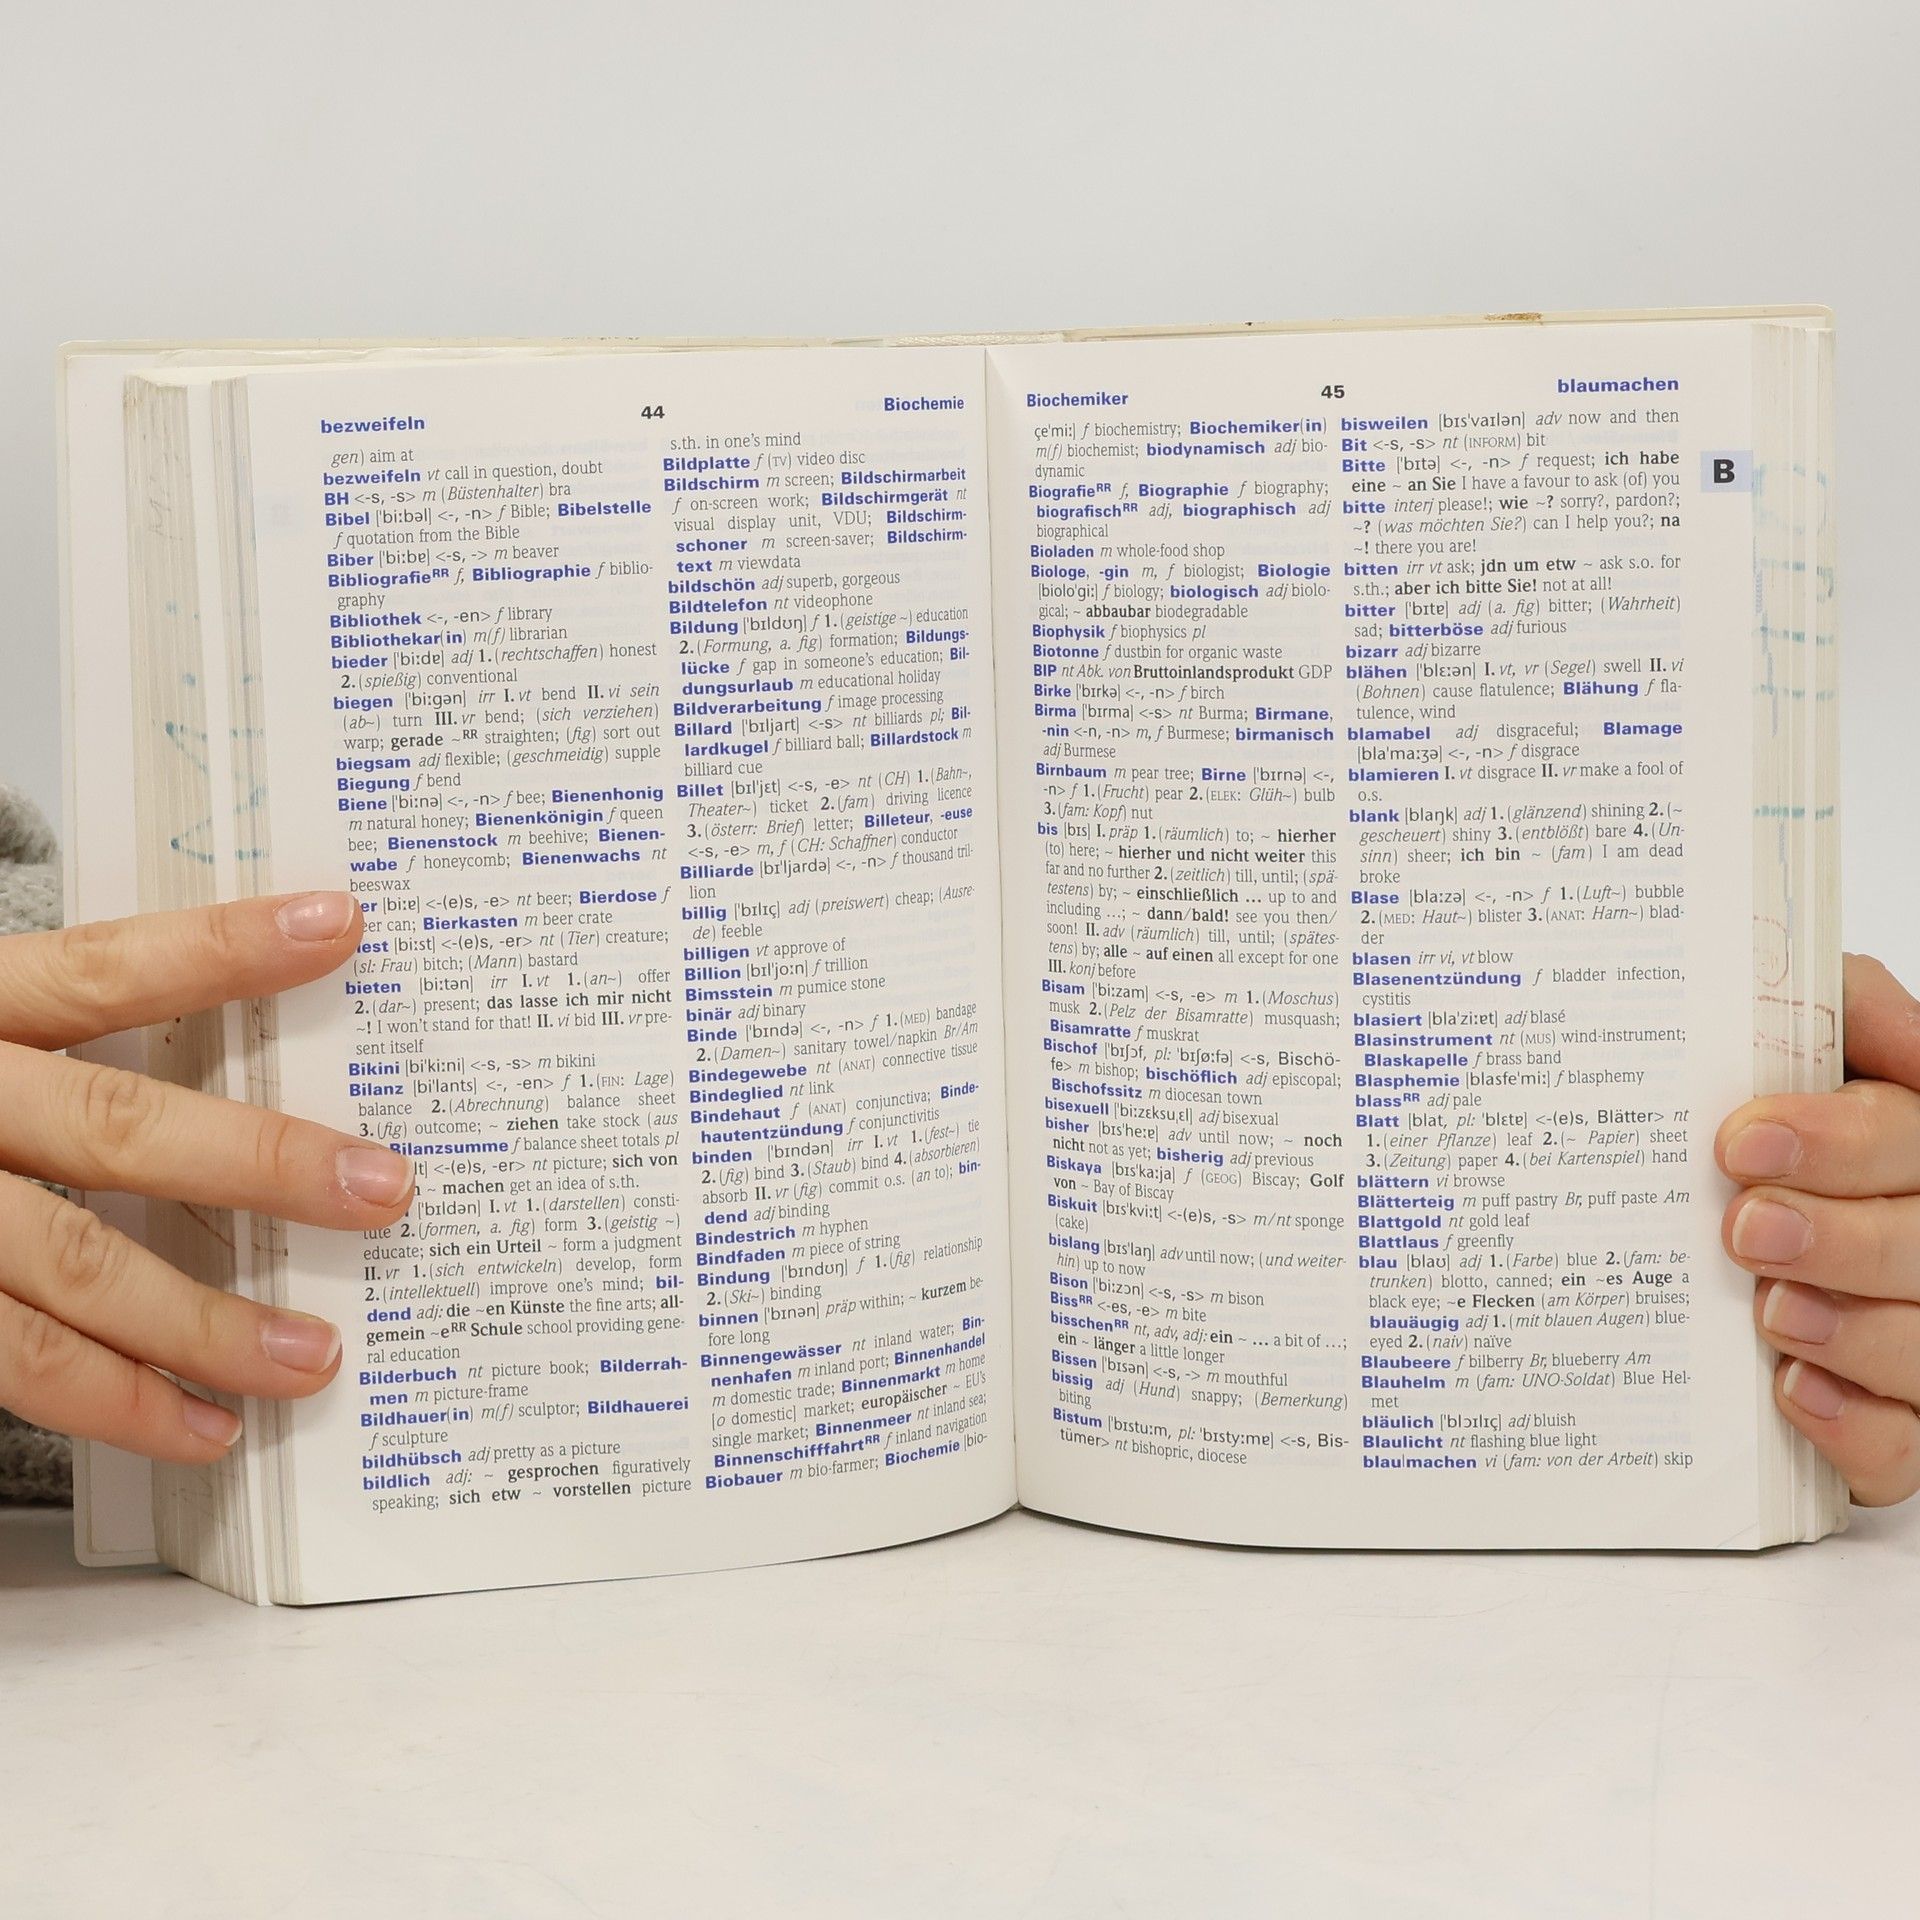 bezweifeln 44 Biochemie
gen) aim at
bezweifeln vt call in question, doubt
BH <-s, -s> m (Büstenhalter) bra
Bibel ['bi:bəl] <-, -n> f Bible; Bibelstelle
f quotation from the Bible
Biber ['bi:bɐ] <-s, -> m beaver
Bibliografieᴿᴿ f, Bibliographie f biblio-
graphy
Bibliothek <-, -en> f library
Bibliothekar(in) m(f) librarian
bieder ['bi:dɐ] adj 1. (rechtschaffen) honest
2. (spießig) conventional
biegen ['bi:gən] irr I. vt bend II. vi sein
(ab~) turn III. vr bend; (sich verziehen)
warp; gerade ~ᴿᴿ straighten; (fig) sort out
biegsam adj flexible; (geschmeidig) supple
Biegung f bend
Biene ['bi:nə] <-, -n> f bee; Bienenhonig
m natural honey; Bienenkönigin f queen
bee; Bienenstock m beehive; Bienen-
wabe f honeycomb; Bienenwachs nt
beeswax
er [bi:ɐ] <-(e)s, -e> nt beer; Bierdose f
eer can; Bierkasten m beer crate
iest [bi:st] <-(e)s, -er> nt (Tier) creature;
(sl: Frau) bitch; (Mann) bastard
bieten [bi:tən] irr I. vt 1. (an~) offer
2. (dar~) present; das lasse ich mir nicht
~! I won't stand for that! II. vi bid III. vr pre-
sent itself
Bikini [bi'ki:ni] <-s, -s> m bikini
Bilanz [bi'lants] <-, -en> f 1. (FIN: Lage)
balance 2. (Abrechnung) balance sheet
3. (fig) outcome; ~ ziehen take stock (aus
Bilanzsumme f balance sheet totals pl
lt] <-(e)s, -er> nt picture; sich von
h ~ machen get an idea of s.th.
['bɪldən] I. vt 1. (darstellen) consti-
tute 2. (formen, a. fig) form 3. (geistig ~)
educate; sich ein Urteil ~ form a judgment
II. vr 1. (sich entwickeln) develop, form
2. (intellektuell) improve one's mind; bil-
dend adj: die ~en Künste the fine arts; all-
gemein ~eᴿᴿ Schule school providing gene-
ral education
Bilderbuch nt picture book; Bilderrah-
men m picture-frame
Bildhauer(in) m(f) sculptor; Bildhauerei
f sculpture
bildhübsch adj pretty as a picture
bildlich adj: ~ gesprochen figuratively
speaking; sich etw ~ vorstellen picture
s.th. in one's mind
Bildplatte f (TV) video disc
Bildschirm m screen; Bildschirmarbeit
f on-screen work; Bildschirmgerät nt
visual display unit, VDU; Bildschirm-
schoner m screen-saver; Bildschirm-
text m viewdata
bildschön adj superb, gorgeous
Bildtelefon nt videophone
Bildung ['bɪldʊŋ] f 1. (geistige ~) education
2. (Formung, a. fig) formation; Bildungs-
lücke f gap in someone's education; Bil-
dungsurlaub m educational holiday
Bildverarbeitung f image processing
Billard ['bɪljart] <-s> nt billiards pl; Bil-
lardkugel f billiard ball; Billardstock m
billiard cue
Billet [bɪl'jɛt] <-s, -e> nt (CH) 1. (Bahn~,
Theater~) ticket 2. (fam) driving licence
3. (österr: Brief) letter; Billeteur, -euse
<-s, -e> m, f (CH: Schaffner) conductor
Billiarde [bɪ'ljardə] <-, -n> f thousand tril-
lion
billig ['bɪlɪç] adj (preiswert) cheap; (Ausre-
de) feeble
billigen vt approve of
Billion [bɪl'jo:n] f trillion
Bimsstein m pumice stone
binär adj binary
Binde ['bɪndə] <-, -n> f 1. (MED) bandage
2. (Damen~) sanitary towel/napkin Br/Am
Bindegewebe nt (ANAT) connective tissue
Bindeglied nt link
Bindehaut f (ANAT) conjunctiva; Binde-
hautentzündung f conjunctivitis
binden ['bɪndən] irr I. vt 1. (fest~) tie
2. (fig) bind 3. (Staub) bind 4. (absorbieren)
absorb II. vr (fig) commit o.s. (an to); bin-
dend adj binding
Bindestrich m hyphen
Bindfaden m piece of string
Bindung ['bɪndʊŋ] f 1. (fig) relationship
2. (Ski~) binding
binnen ['bɪnən] präp within; ~ kurzem be-
fore long
Binnengewässer nt inland water; Bin-
nenhafen m inland port; Binnenhandel
m domestic trade; Binnenmarkt m home
[o domestic] market; europäischer ~ EU's
single market; Binnenmeer nt inland sea;
Binnenschifffahrtᴿᴿ f inland navigation
Biobauer m bio-farmer; Biochemie [bio-
Biochemiker 45 blaumachen
çe'mi:] f biochemistry; Biochemiker(in)
m(f) biochemist; biodynamisch adj bio-
dynamic
Biografieᴿᴿ f, Biographie f biography;
biografischᴿᴿ adj, biographisch adj
biographical
Bioladen m whole-food shop
Biologe, -gin m, f biologist; Biologie
[biolo'gi:] f biology; biologisch adj biolo-
gical; ~ abbaubar biodegradable
Biophysik f biophysics pl
Biotonne f dustbin for organic waste
BIP nt Abk. von Bruttoinlandsprodukt GDP
Birke ['bɪrkə] <-, -n> f birch
Birma ['bɪrma] <-s> nt Burma; Birmane,
-nin <-n, -n> m, f Burmese; birmanisch
adj Burmese
Birnbaum m pear tree; Birne ['bɪrnə] <-,
-n> f 1. (Frucht) pear 2. (ELEK: Glüh~) bulb
3. (fam: Kopf) nut
bis [bɪs] I. präp 1. (räumlich) to; ~ hierher
(to) here; ~ hierher und nicht weiter this
far and no further 2. (zeitlich) till, until; (spä-
testens) by; ~ einschließlich ... up to and
including ...; ~ dann/bald! see you then/
soon! II. adv (räumlich) till, until; (spätes-
tens) by; alle ~ auf einen all except for one
III. konj before
Bisam ['bi:zam] <-s, -e> m 1. (Moschus)
musk 2. (Pelz der Bisamratte) musquash;
Bisamratte f muskrat
Bischof ['bɪʃɔf, pl: 'bɪʃø:fə] <-s, Bischö-
fe> m bishop; bischöflich adj episcopal;
Bischofssitz m diocesan town
bisexuell ['bi:zɛksuˌɛl] adj bisexual
bisher [bɪs'he:ɐ] adv until now; ~ noch
nicht not as yet; bisherig adj previous
Biskaya [bɪs'ka:ja] f (GEOG) Biscay; Golf
von ~ Bay of Biscay
Biskuit [bɪs'kvi:t] <-(e)s, -s> m/nt sponge
(cake)
bislang [bɪs'laŋ] adv until now; (und weiter-
hin) up to now
Bison ['bi:zɔn] <-s, -s> m bison
Bissᴿᴿ <-es, -e> m bite
bisschenᴿᴿ nt, adv, adj: ein ~ ... a bit of ...;
ein ~ länger a little longer
Bissen ['bɪsən] <-s, -> m mouthful
bissig adj (Hund) snappy; (Bemerkung)
biting
Bistum ['bɪstu:m, pl: 'bɪsty:mɐ] <-s, Bis-
tümer> nt bishopric, diocese
bisweilen [bɪs'vaɪlən] adv now and then
Bit <-s, -s> nt (INFORM) bit
Bitte ['bɪtə] <-, -n> f request; ich habe
eine ~ an Sie I have a favour to ask (of) you
bitte interj please!; wie ~? sorry?, pardon?;
~? (was möchten Sie?) can I help you?; na
~! there you are!
bitten irr vt ask; jdn um etw ~ ask s.o. for
s.th.; aber ich bitte Sie! not at all!
bitter ['bɪtɐ] adj (a. fig) bitter; (Wahrheit)
sad; bitterböse adj furious
bizarr adj bizarre
blähen ['blɛ:ən] I. vt, vr (Segel) swell II. vi
(Bohnen) cause flatulence; Blähung f fla-
tulence, wind
blamabel adj disgraceful; Blamage
[bla'ma:ʒə] <-, -n> f disgrace
blamieren I. vt disgrace II. vr make a fool of
o.s.
blank [blaŋk] adj 1. (glänzend) shining 2. (~
gescheuert) shiny 3. (entblößt) bare 4. (Un-
sinn) sheer; ich bin ~ (fam) I am dead
broke
Blase [bla:zə] <-, -n> f 1. (Luft~) bubble
2. (MED: Haut~) blister 3. (ANAT: Harn~) blad-
der
blasen irr vi, vt blow
Blasenentzündung f bladder infection,
cystitis
blasiert [bla'zi:ɐt] adj blasé
Blasinstrument nt (MUS) wind-instrument;
Blaskapelle f brass band
Blasphemie [blasfe'mi:] f blasphemy
blassᴿᴿ adj pale
Blatt [blat, pl: 'blɛtɐ] <-(e)s, Blätter> nt
1. (einer Pflanze) leaf 2. (~ Papier) sheet
3. (Zeitung) paper 4. (bei Kartenspiel) hand
blättern vi browse
Blätterteig m puff pastry Br, puff paste Am
Blattgold nt gold leaf
Blattlaus f greenfly
blau [blaʊ] adj 1. (Farbe) blue 2. (fam: be-
trunken) blotto, canned; ein ~es Auge a
black eye; ~e Flecken (am Körper) bruises;
blauäugig adj 1. (mit blauen Augen) blue-
eyed 2. (naiv) naïve
Blaubeere f bilberry Br, blueberry Am
Blauhelm m (fam: UNO-Soldat) Blue Hel-
met
bläulich ['blɔɪlɪç] adj bluish
Blaulicht nt flashing blue light
blau|machen vi (fam: von der Arbeit) skip
B